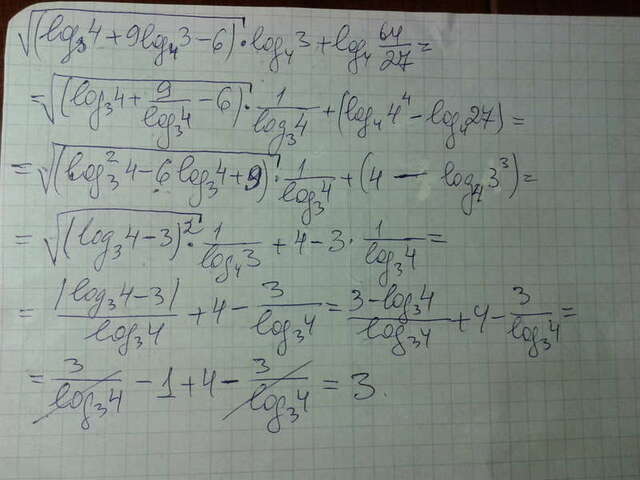 √(log₃4 + 9log₄3 − 6) · log₄3 + log₄ 64/27 =
= √(log₃4 + 9/log₃4 − 6) · 1/log₃4 + (log₄4⁴ − log₄27) =
= √(log₃²4 − 6log₃4 + 9) · 1/log₃4 + (4 − log₄3³) =
= √(log₃4 − 3)² · 1/log₄3 + 4 − 3 · 1/log₃4 =
= |log₃4 − 3|/log₃4 + 4 − 3/log₃4 = 3 − log₃4/log₃4 + 4 − 3/log₃4 =
= 3/log₃4 − 1 + 4 − 3/log₃4 = 3.